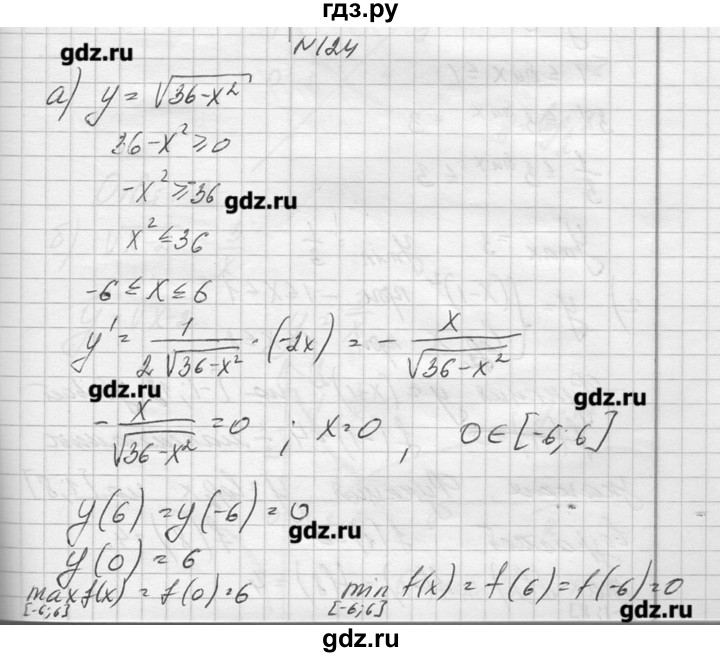 гдз.ру
gdz.ru
№124
а) y = √(36-x²)
36-x² ≥ 0
gdz.ru
-x² ≥ -36
x² ≤ 36
-6 ≤ x ≤ 6
y' = 1/(2√(36-x²)) · (-2x) = - x/√(36-x²)
gdz.ru
gdz.ru
- x/√(36-x²) = 0 ; x=0 , 0 ∈ [-6; 6]
y(6) = y(-6) = 0
gdz.ru
y(0) = 6
max f(x) = f(0) = 6 min f(x) = f(6) = f(-6) = 0
[-6;6] [-6;6]
gdz.ru
gdz.ru